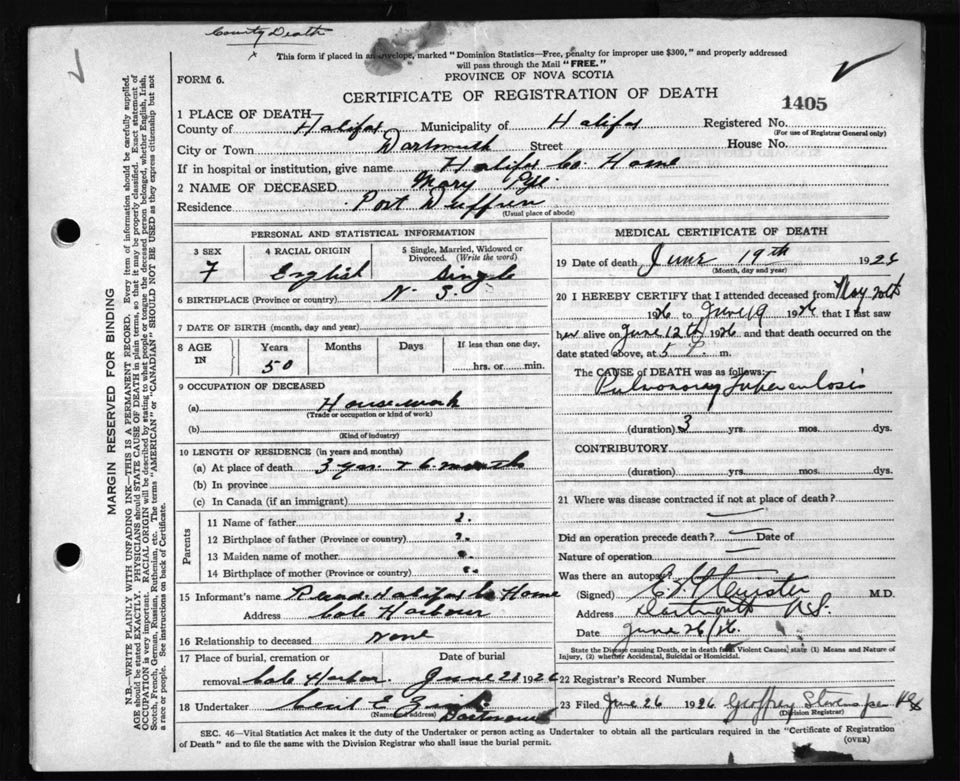 County Death
This form if placed in an envelope, marked "Dominion Statistics—Free, penalty for improper use $300," and properly addressed
will pass through the Mail "FREE."
FORM 6.
PROVINCE OF NOVA SCOTIA
CERTIFICATE OF REGISTRATION OF DEATH
1405
1 PLACE OF DEATH
County of Halifax Municipality of Halifax Registered No.
(For use of Registrar General only)
City or Town Dartmouth Street House No.
If in hospital or institution, give name Halifax Co. Home
2 NAME OF DECEASED Mary Pye
Residence Port Dufferin
(Usual place of abode)
PERSONAL AND STATISTICAL INFORMATION
3 SEX 4 RACIAL ORIGIN 5 Single, Married, Widowed or Divorced. (Write the word)
F English Single
6 BIRTHPLACE (Province or country) N. S.
7 DATE OF BIRTH (month, day and year)
8 AGE IN Years Months Days If less than one day,
50 hrs. or min.
9 OCCUPATION OF DECEASED
(a) Housework
(Trade or occupation or kind of work)
(b)
(Kind of industry)
10 LENGTH OF RESIDENCE (in years and months)
(a) At place of death 3 yrs. + 6 months
(b) In province
(c) In Canada (if an immigrant)
Parents
11 Name of father ?
12 Birthplace of father (Province or country) ?
13 Maiden name of mother
14 Birthplace of mother (Province or country)
15 Informant's name Halifax Co Home
Address Cole Harbour
16 Relationship to deceased None
17 Place of burial, cremation or Date of burial
removal Cole Harbor June 1926
18 Undertaker Cecil E
(Name and address) Dartmouth
MEDICAL CERTIFICATE OF DEATH
19 Date of death June 19th 1926
(Month, day and year)
20 I HEREBY CERTIFY that I attended deceased from May 20th
1926 to June 19 1926 that I last saw
her alive on June 12th 1926 and that death occurred on
date stated above, at 5 P. m.
The CAUSE OF DEATH was as follows:
Pulmonary Tuberculosis
(duration) 3 yrs. mos. dys.
CONTRIBUTORY
(duration) yrs. mos. dys.
21 Where was disease contracted if not at place of death?
Did an operation precede death? Date of
Nature of operation
Was there an autopsy?
(Signed) M.D.
Address Dartmouth N.S.
Date June 26/26.
State the Disease causing Death, or in death from Violent Causes, state (1) Means and Nature of
Injury, (2) whether Accidental, Suicidal or Homicidal.
22 Registrar's Record Number
23 Filed June 26 1926 Geoffrey
(Division Registrar)
SEC. 46—Vital Statistics Act makes it the duty of the Undertaker or person acting as Undertaker to obtain all the particulars required in the "Certificate of Registration
of Death" and to file the same with the Division Registrar who shall issue the burial permit.
(OVER)
MARGIN RESERVED FOR BINDING
N.B.—WRITE PLAINLY WITH UNFADING INK—THIS IS A PERMANENT RECORD. Every item of information should be carefully supplied.
AGE should be stated EXACTLY. PHYSICIANS should STATE CAUSE OF DEATH in plain terms, so that it may be properly classified. Exact statement of
OCCUPATION is very important. RACIAL ORIGIN will be described by stating to what people or tongue the deceased person belonged, whether English, Irish,
Scotch, French, German, Russian, Ruthenian, etc. The terms "AMERICAN" or "CANADIAN" SHOULD NOT BE USED as they express citizenship but not
a race or people. See instructions on back of Certificate.